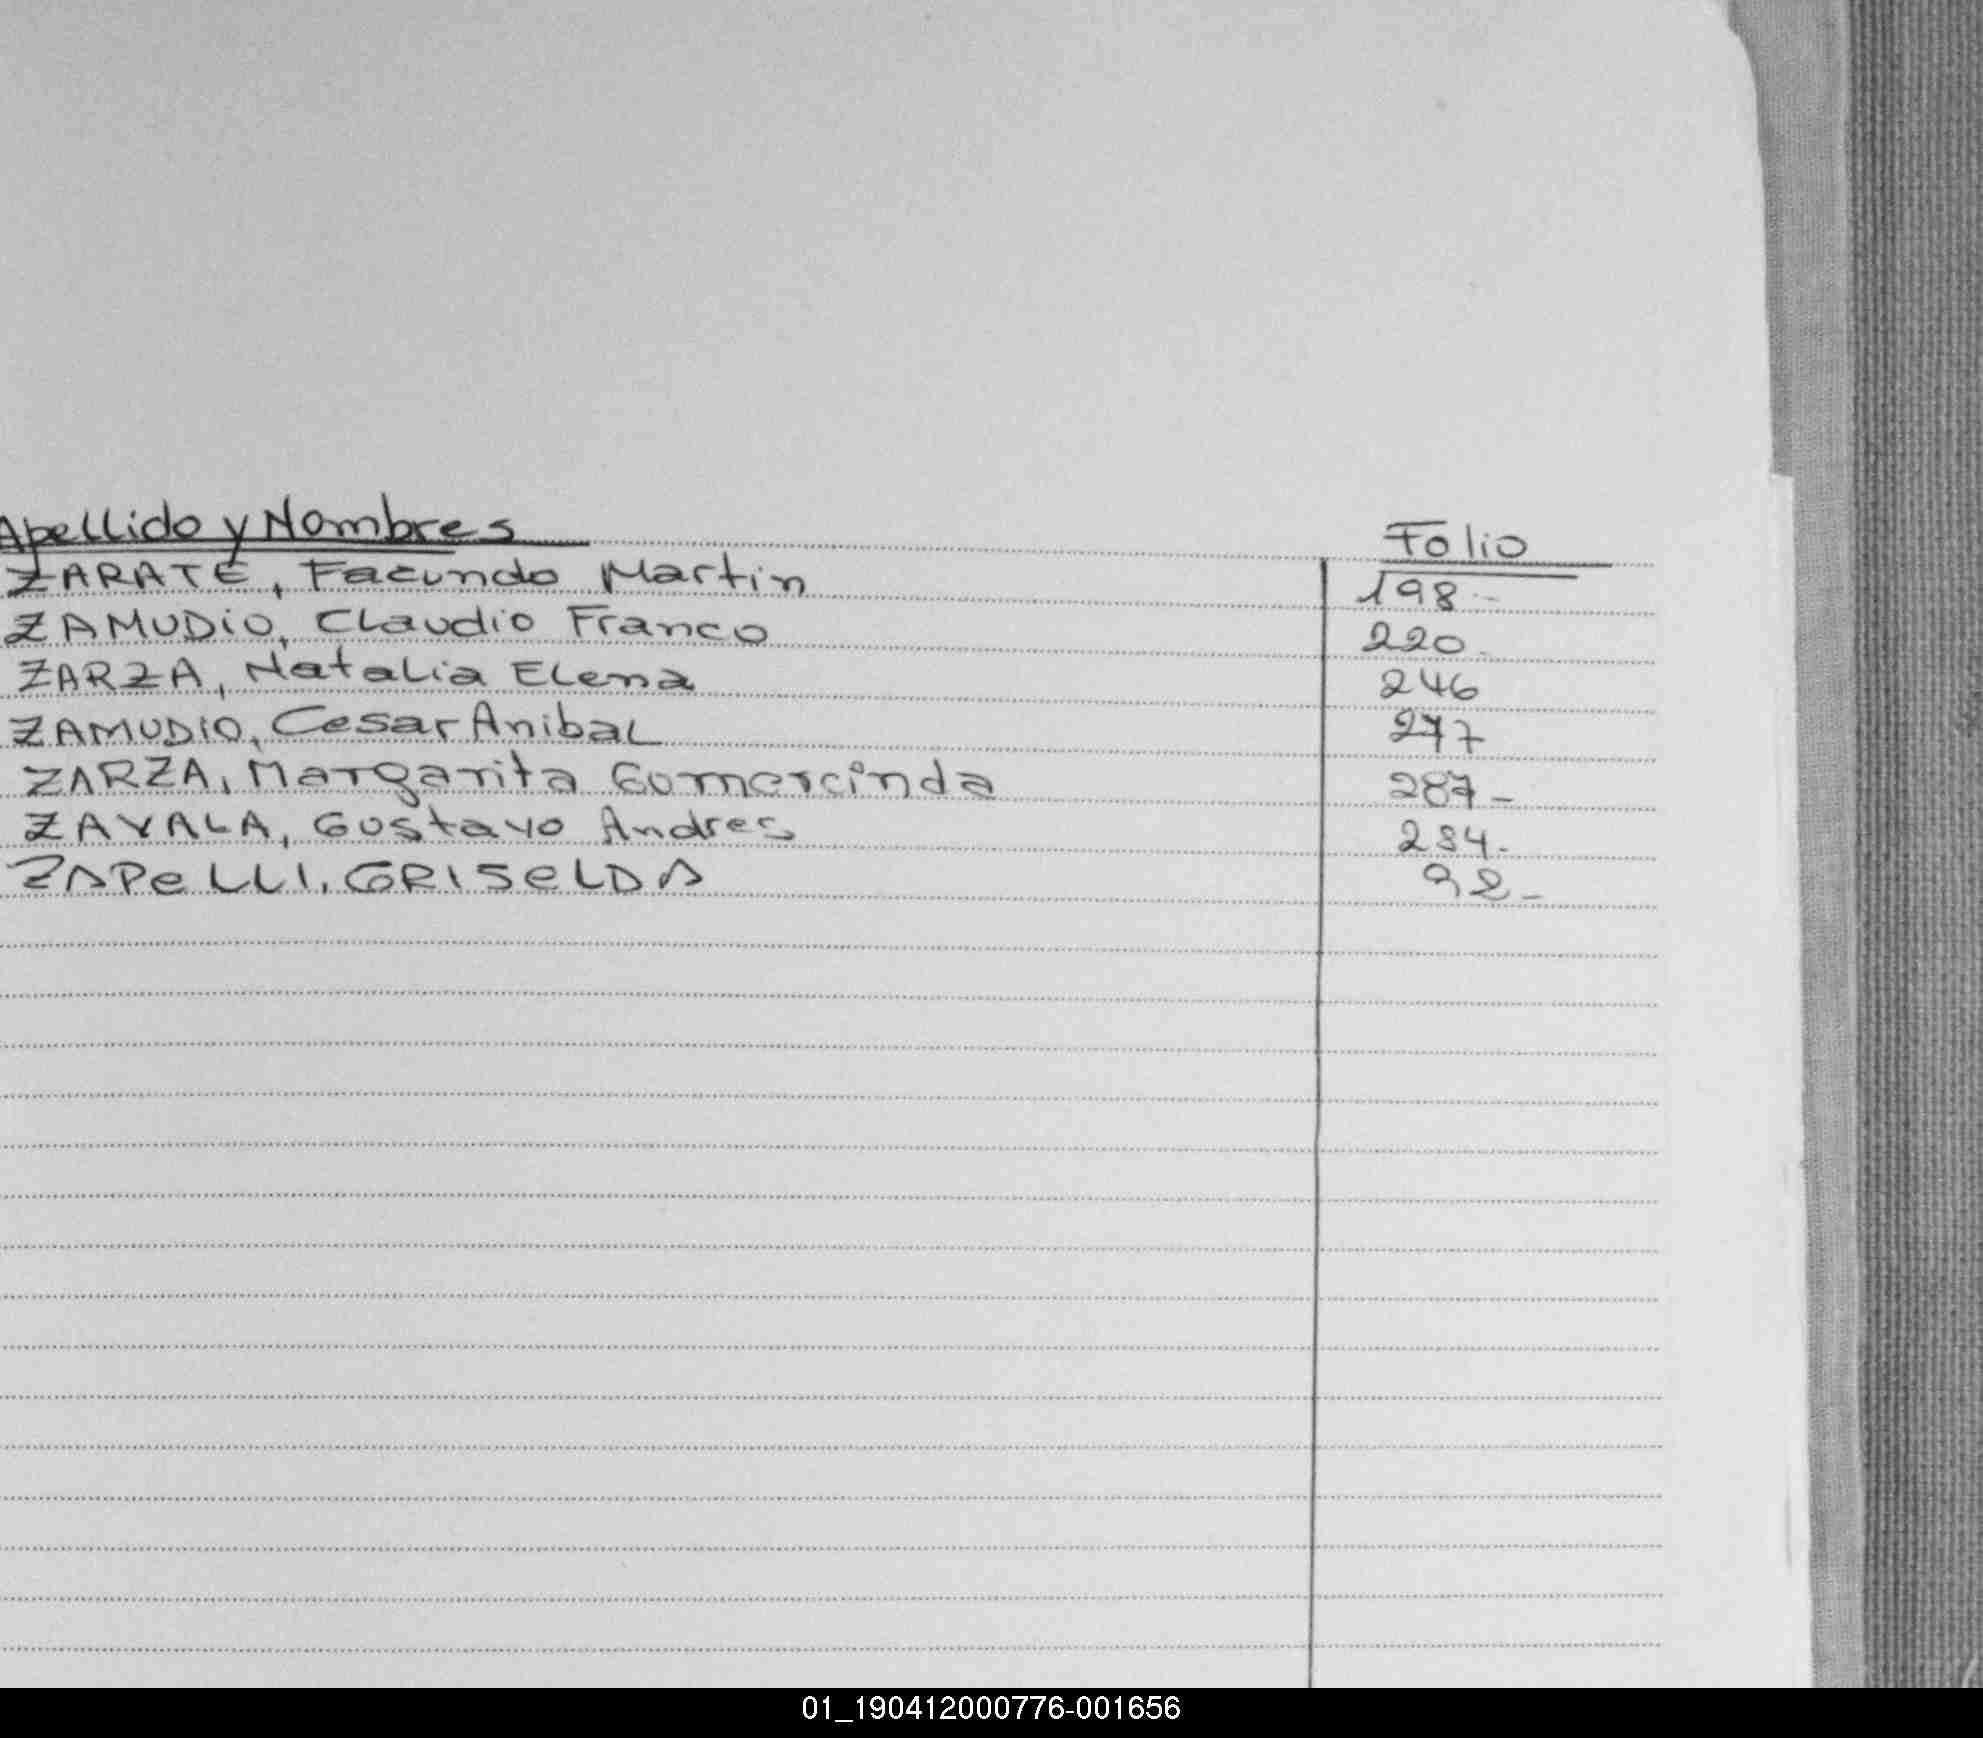 Apellido y Nombres Folio
ZARATE, Facundo Martin 198-
ZAMUDIO, Claudio Franco 220-
ZARZA, Natalia Elena 246
ZAMUDIO, Cesar Anibal 277
ZARZA, Margarita Gomercinda 287-
ZAVALA, Gustavo Andres
ZAPELLI, GRISELDA 92-
01_190412000776-001656